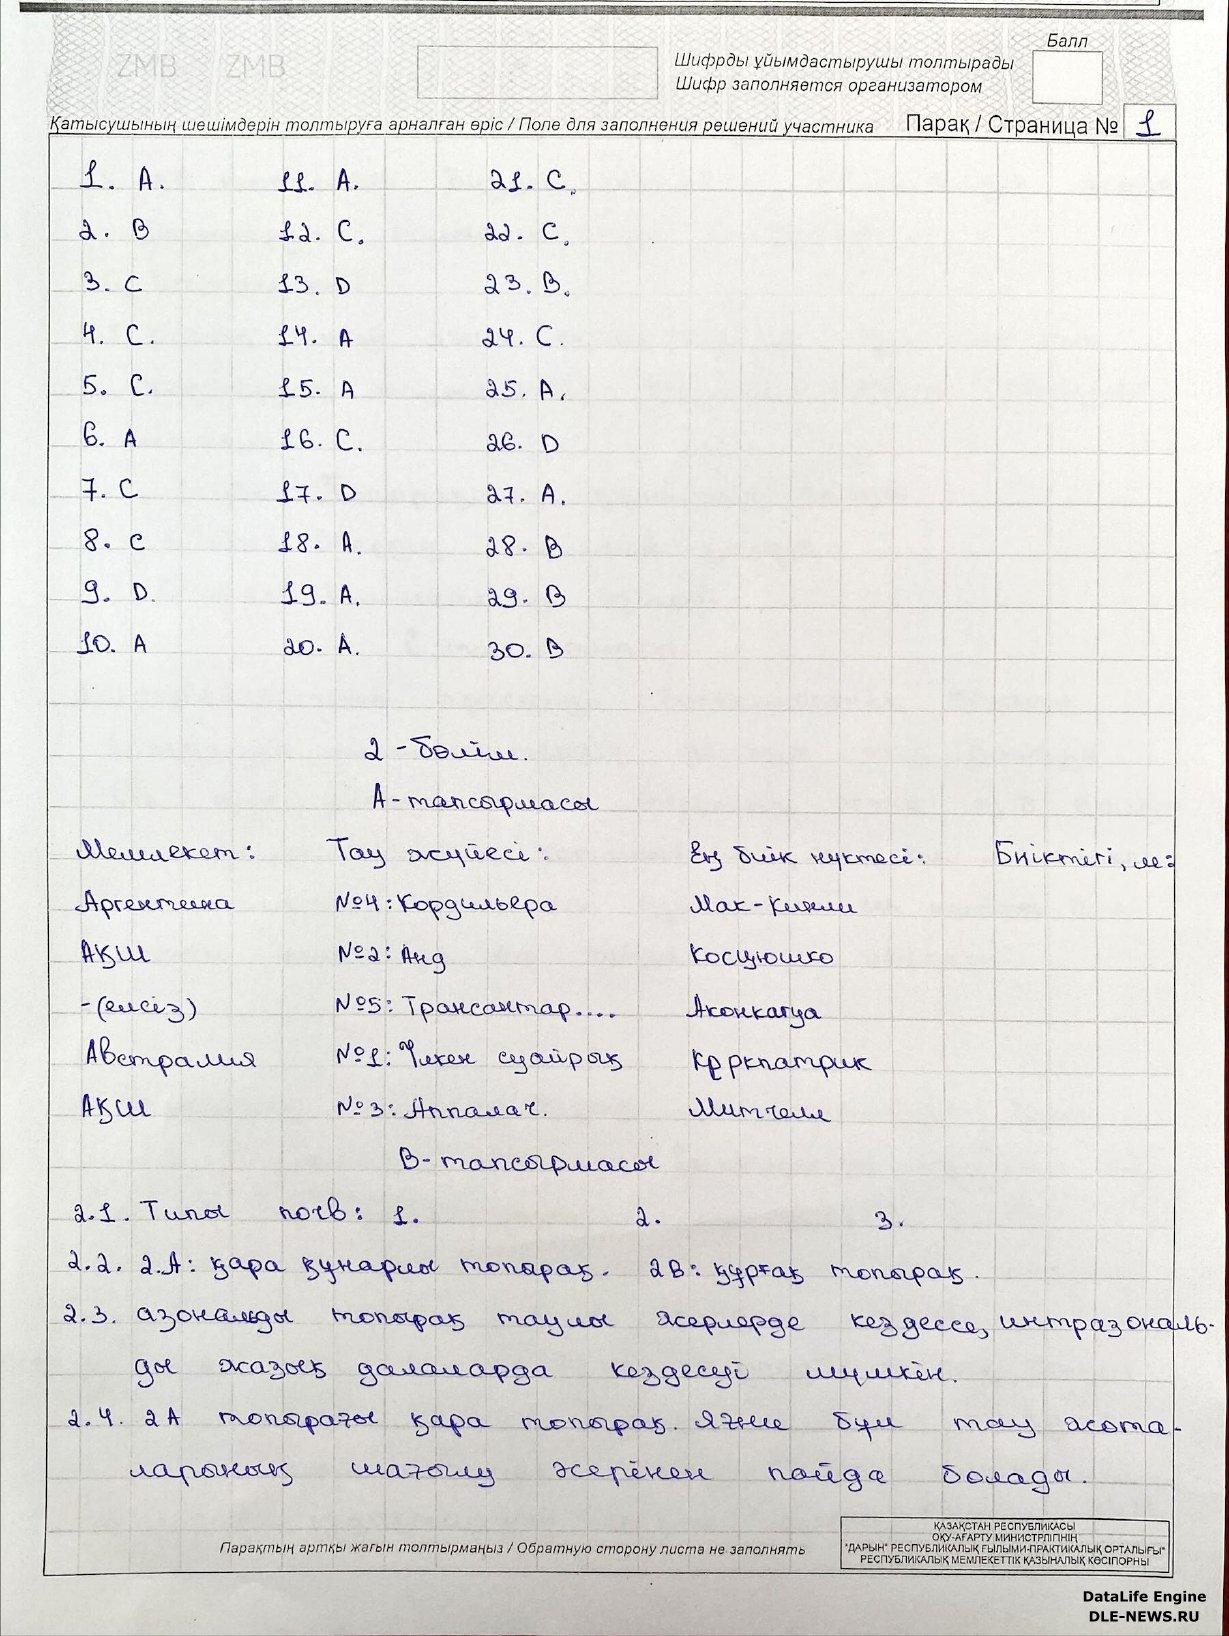 ZMB ZMB
Балл
Шифрды ұйымдастырушы толтырады
Шифр заполняется организатором
Қатысушының шешімдерін толтыруға арналған өріс / Поле для заполнения решений участника Парақ / Страница № 1
1. A. 11. A. 21. C.
2. B 12. C. 22. C.
3. C 13. D 23. B.
4. C. 14. A 24. C.
5. C. 15. A 25. A.
6. A 16. C. 26. D
7. C 17. D 27. A.
8. C 18. A. 28. B
9. D. 19. A. 29. B
10. A 20. A. 30. B
2-бөлім.
А-тапсырмасы
Мемлекет: Тау жүйесі: Ең биік нүктесі: Биіктігі, м:
Аргентина №4: Кордильера Мак-Кинли
АҚШ №2: Анд Косцюшко
-(елсіз) №5: Трансантар.... Аконкагуа
Австралия №1: Үлкен суайрық Кррkпатрик
АҚШ №3: Аппалач. Митчелл
В-тапсырмасы
2.1. Типы почв: 1. 2. 3.
2.2. 2.А: қара құнарлы топырақ. 2В: құрғақ топырақ.
2.3. азональды топырақ таулы жерлерде кездессе, интразональ-
ды жазық далаларда кездесуі мүмкін.
2.4. 2А топырағы қара топырақ. Яғни бұл тау жота-
ларының шағылу әсерінен пайда болады.
Парақтың артқы жағын толтырмаңыз / Обратную сторону листа не заполнять
ҚАЗАҚСТАН РЕСПУБЛИКАСЫ
ОҚУ-АҒАРТУ МИНИСТРЛІГІНІҢ
"ДАРЫН" РЕСПУБЛИКАЛЫҚ ҒЫЛЫМИ-ПРАКТИКАЛЫҚ ОРТАЛЫҒЫ"
РЕСПУБЛИКАЛЫҚ МЕМЛЕКЕТТІК ҚАЗЫНАЛЫҚ КӘСІПОРНЫ
DataLife Engine
DLE-NEWS.RU